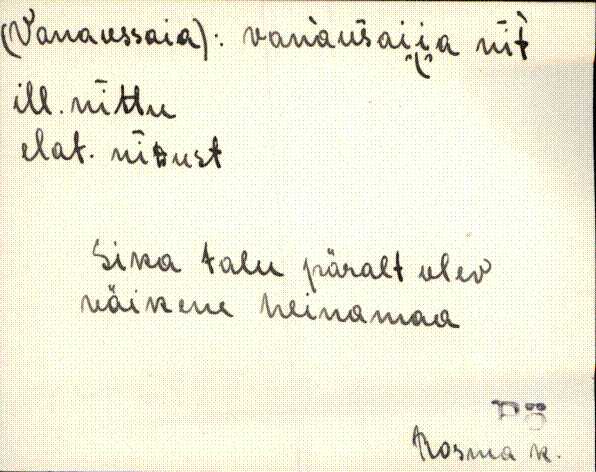 (Vanaussaia): vanaùsaiia nìt̀
ill. nīttu
elat. nīDust
Sika talu päralt olev
väikene heinamaa
Põ
Kosma k.